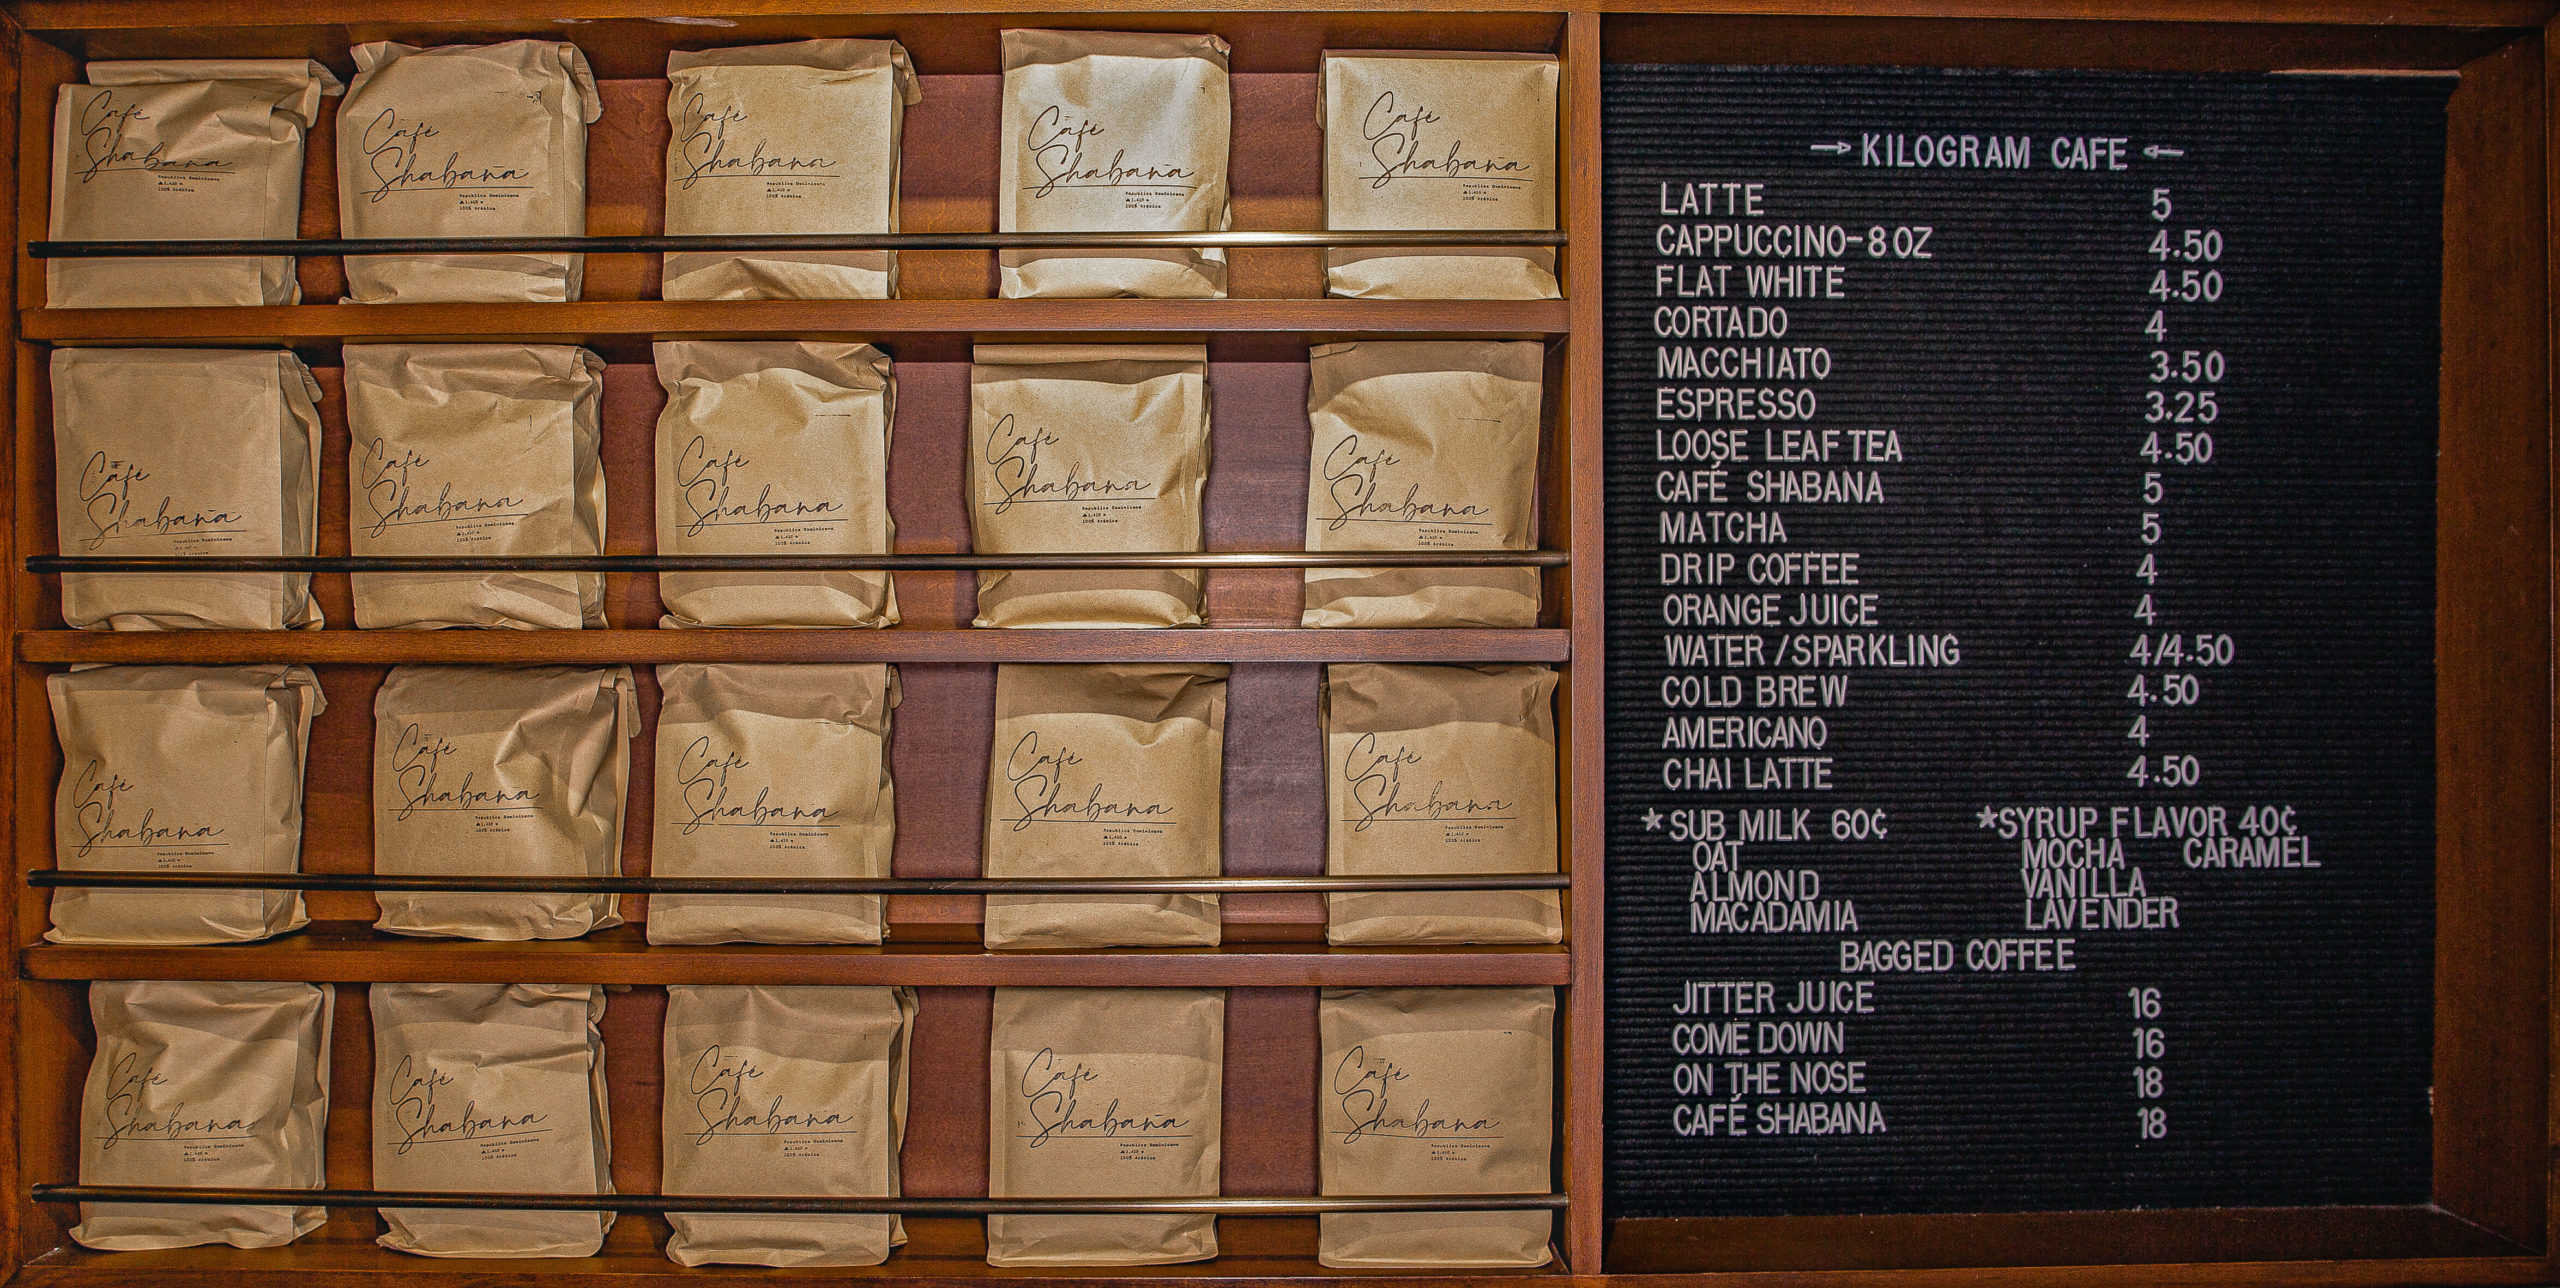 Café
Shabana
República Dominicana
▲1,410 m
100% Arábica
Café
Shabana
República Dominicana
▲1,410 m
100% Arábica
Café
Shabana
República Dominicana
▲1,410 m
100% Arábica
Café
Shabana
República Dominicana
▲1,410 m
100% Arábica
Café
Shabana
República Dominicana
▲1,410 m
100% Arábica
Café
Shabana
República Dominicana
▲1,410 m
Café
Shabana
República Dominicana
▲1,410 m
100% Arábica
Café
Shabana
República Dominicana
▲1,410 m
100% Arábica
Café
Shabana
República Dominicana
▲1,410 m
100% Arábica
Café
Shabana
República Dominicana
▲1,410 m
100% Arábica
Café
Shabana
República Dominicana
▲1,410 m
100% Arábica
Café
Shabana
República Dominicana
▲1,410 m
100% Arábica
Café
Shabana
República Dominicana
▲1,410 m
100% Arábica
Café
Shabana
República Dominicana
▲1,410 m
100% Arábica
Café
Shabana
República Dominicana
▲1,410 m
100% Arábica
Café
Shabana
República Dominicana
▲1,410 m
100% Arábica
Café
Shabana
República Dominicana
▲1,410 m
100% Arábica
Café
Shabana
República Dominicana
▲1,410 m
100% Arábica
Café
Shabana
República Dominicana
▲1,410 m
100% Arábica
Café
Shabana
República Dominicana
▲1,410 m
100% Arábica
→ KILOGRAM CAFE ←
LATTE 5
CAPPUCCINO-8 OZ 4.50
FLAT WHITE 4.50
CORTADO 4
MACCHIATO 3.50
ESPRESSO 3.25
LOOSE LEAF TEA 4.50
CAFÉ SHABANA 5
MATCHA 5
DRIP COFFEE 4
ORANGE JUICE 4
WATER / SPARKLING 4/4.50
COLD BREW 4.50
AMERICANO 4
CHAI LATTE 4.50
*SUB MILK 60¢ *SYRUP FLAVOR 40¢
OAT MOCHA CARAMEL
ALMOND VANILLA
MACADAMIA LAVENDER
BAGGED COFFEE
JITTER JUICE 16
COME DOWN 16
ON THE NOSE 18
CAFÉ SHABANA 18